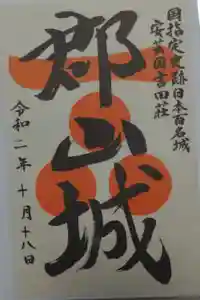 国指定史跡日本百名城
安芸国吉田荘
郡山城
令和二年十月十八日